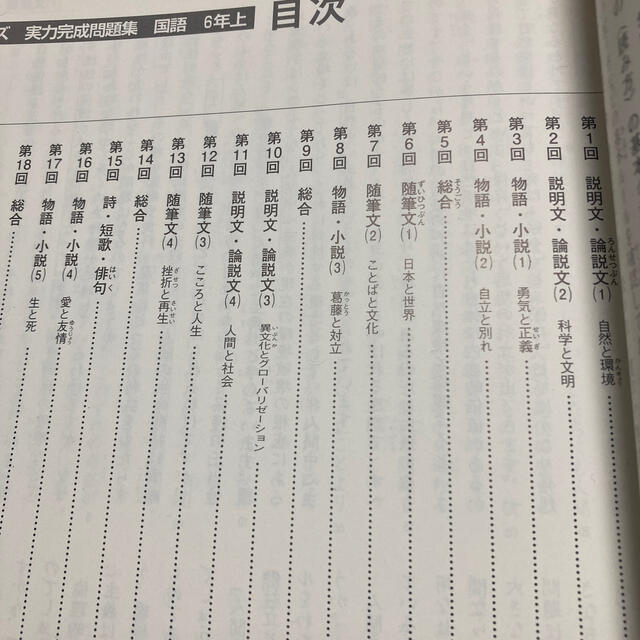 ズ 実力完成問題集 国語 6年上
目次
第1回 説明文・論説文(1) 自然と環境
第2回 説明文・論説文(2) 科学と文明
第3回 物語・小説(1) 勇気と正義
第4回 物語・小説(2) 自立と別れ
第5回 総合
第6回 随筆文(1) 日本と世界
第7回 随筆文(2) ことばと文化
第8回 物語・小説(3) 葛藤と対立
第9回 総合
第10回 説明文・論説文(3) 異文化とグローバリゼーション
第11回 説明文・論説文(4) 人間と社会
第12回 随筆文(3) こころと人生
第13回 随筆文(4) 挫折と再生
第14回 総合
第15回 詩・短歌・俳句
第16回 物語・小説(4) 愛と友情
第17回 物語・小説(5) 生と死
第18回 総合